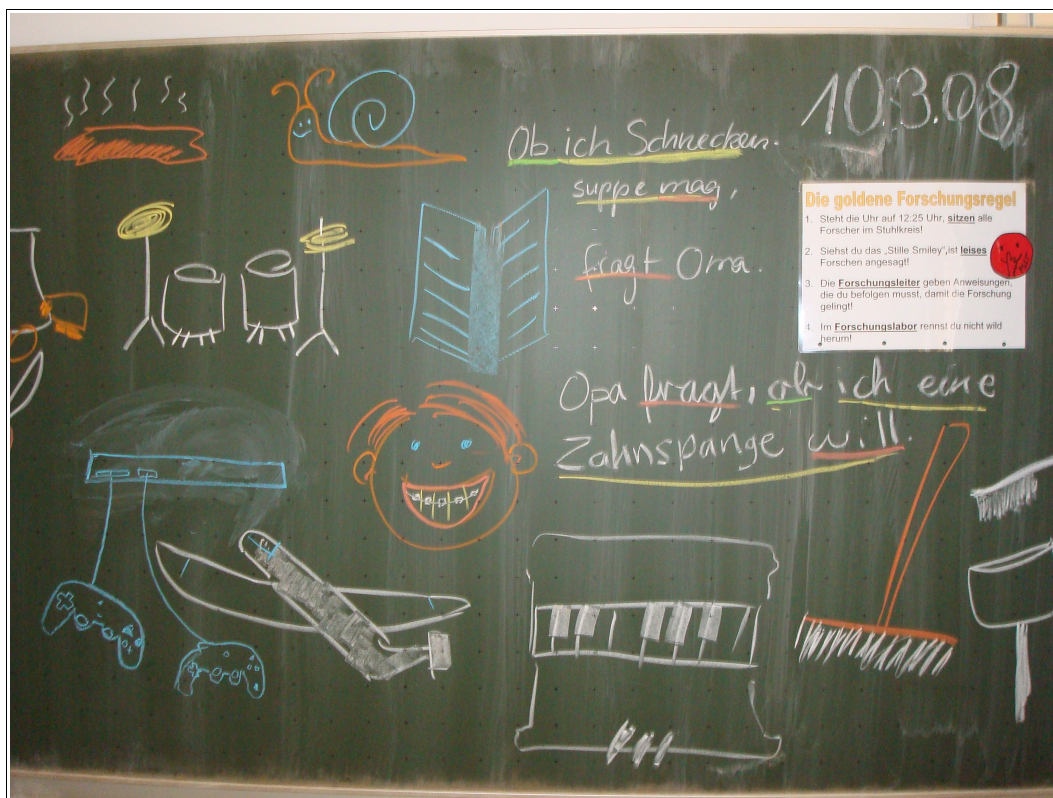 10.3.08
Ob ich Schnecken-
suppe mag,
fragt Oma.
Die goldene Forschungsregel
1. Steht die Uhr auf 12:25 Uhr, sitzen alle
Forscher im Stuhlkreis!
2. Siehst du das „Stille Smiley", ist leises
Forschen angesagt!
3. Die Forschungsleiter geben Anweisungen,
die du befolgen musst, damit die Forschung
gelingt!
4. Im Forschungslabor rennst du nicht wild
herum!
Opa fragt, ob ich eine
Zahnspange will.